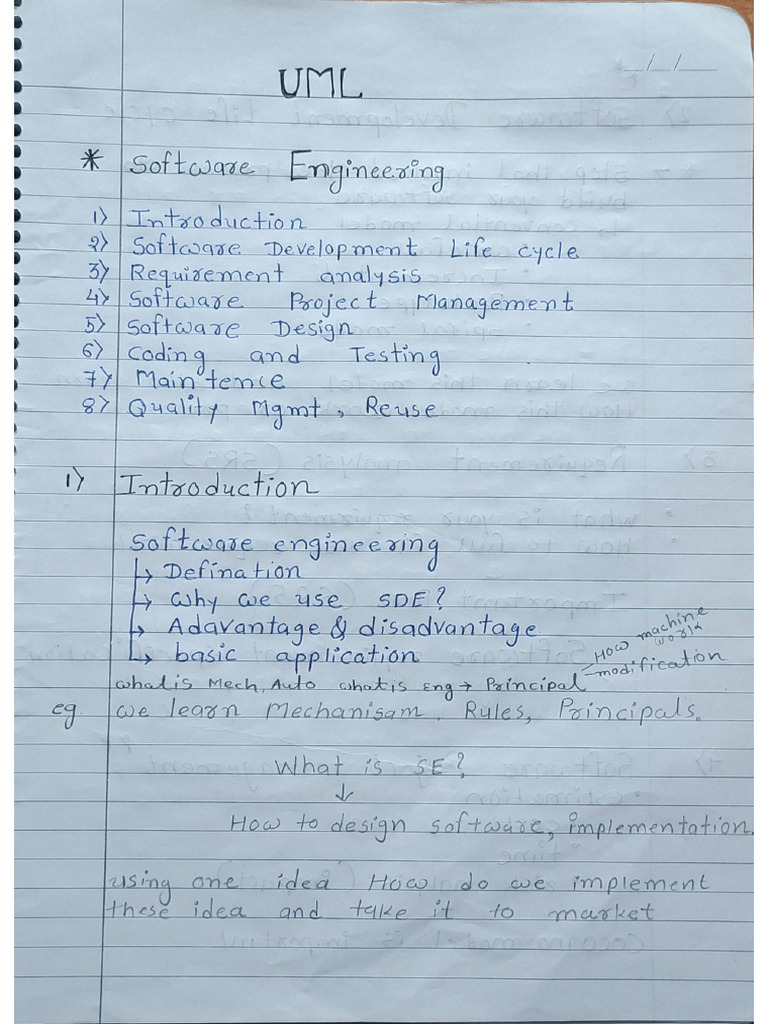 UML
* Software Engineering
1) Introduction
2) Software Development Life cycle
3) Requirement analysis
4) Software Project Management
5) Software Design
6) Coding and Testing
7) Maintence
8) Quality Mgmt, Reuse
1) Introduction
Software engineering
↳ Defination
↳ Why we use SDE?
↳ Adavantage & disadvantage
↳ basic application
what is Mech, Auto what is Eng → Principal
How machine work
modification
eg we learn Mechanisam, Rules, Principals.
What is SE?
↓
How to design software, implementation.
using one idea How do we implement
these idea and take it to market